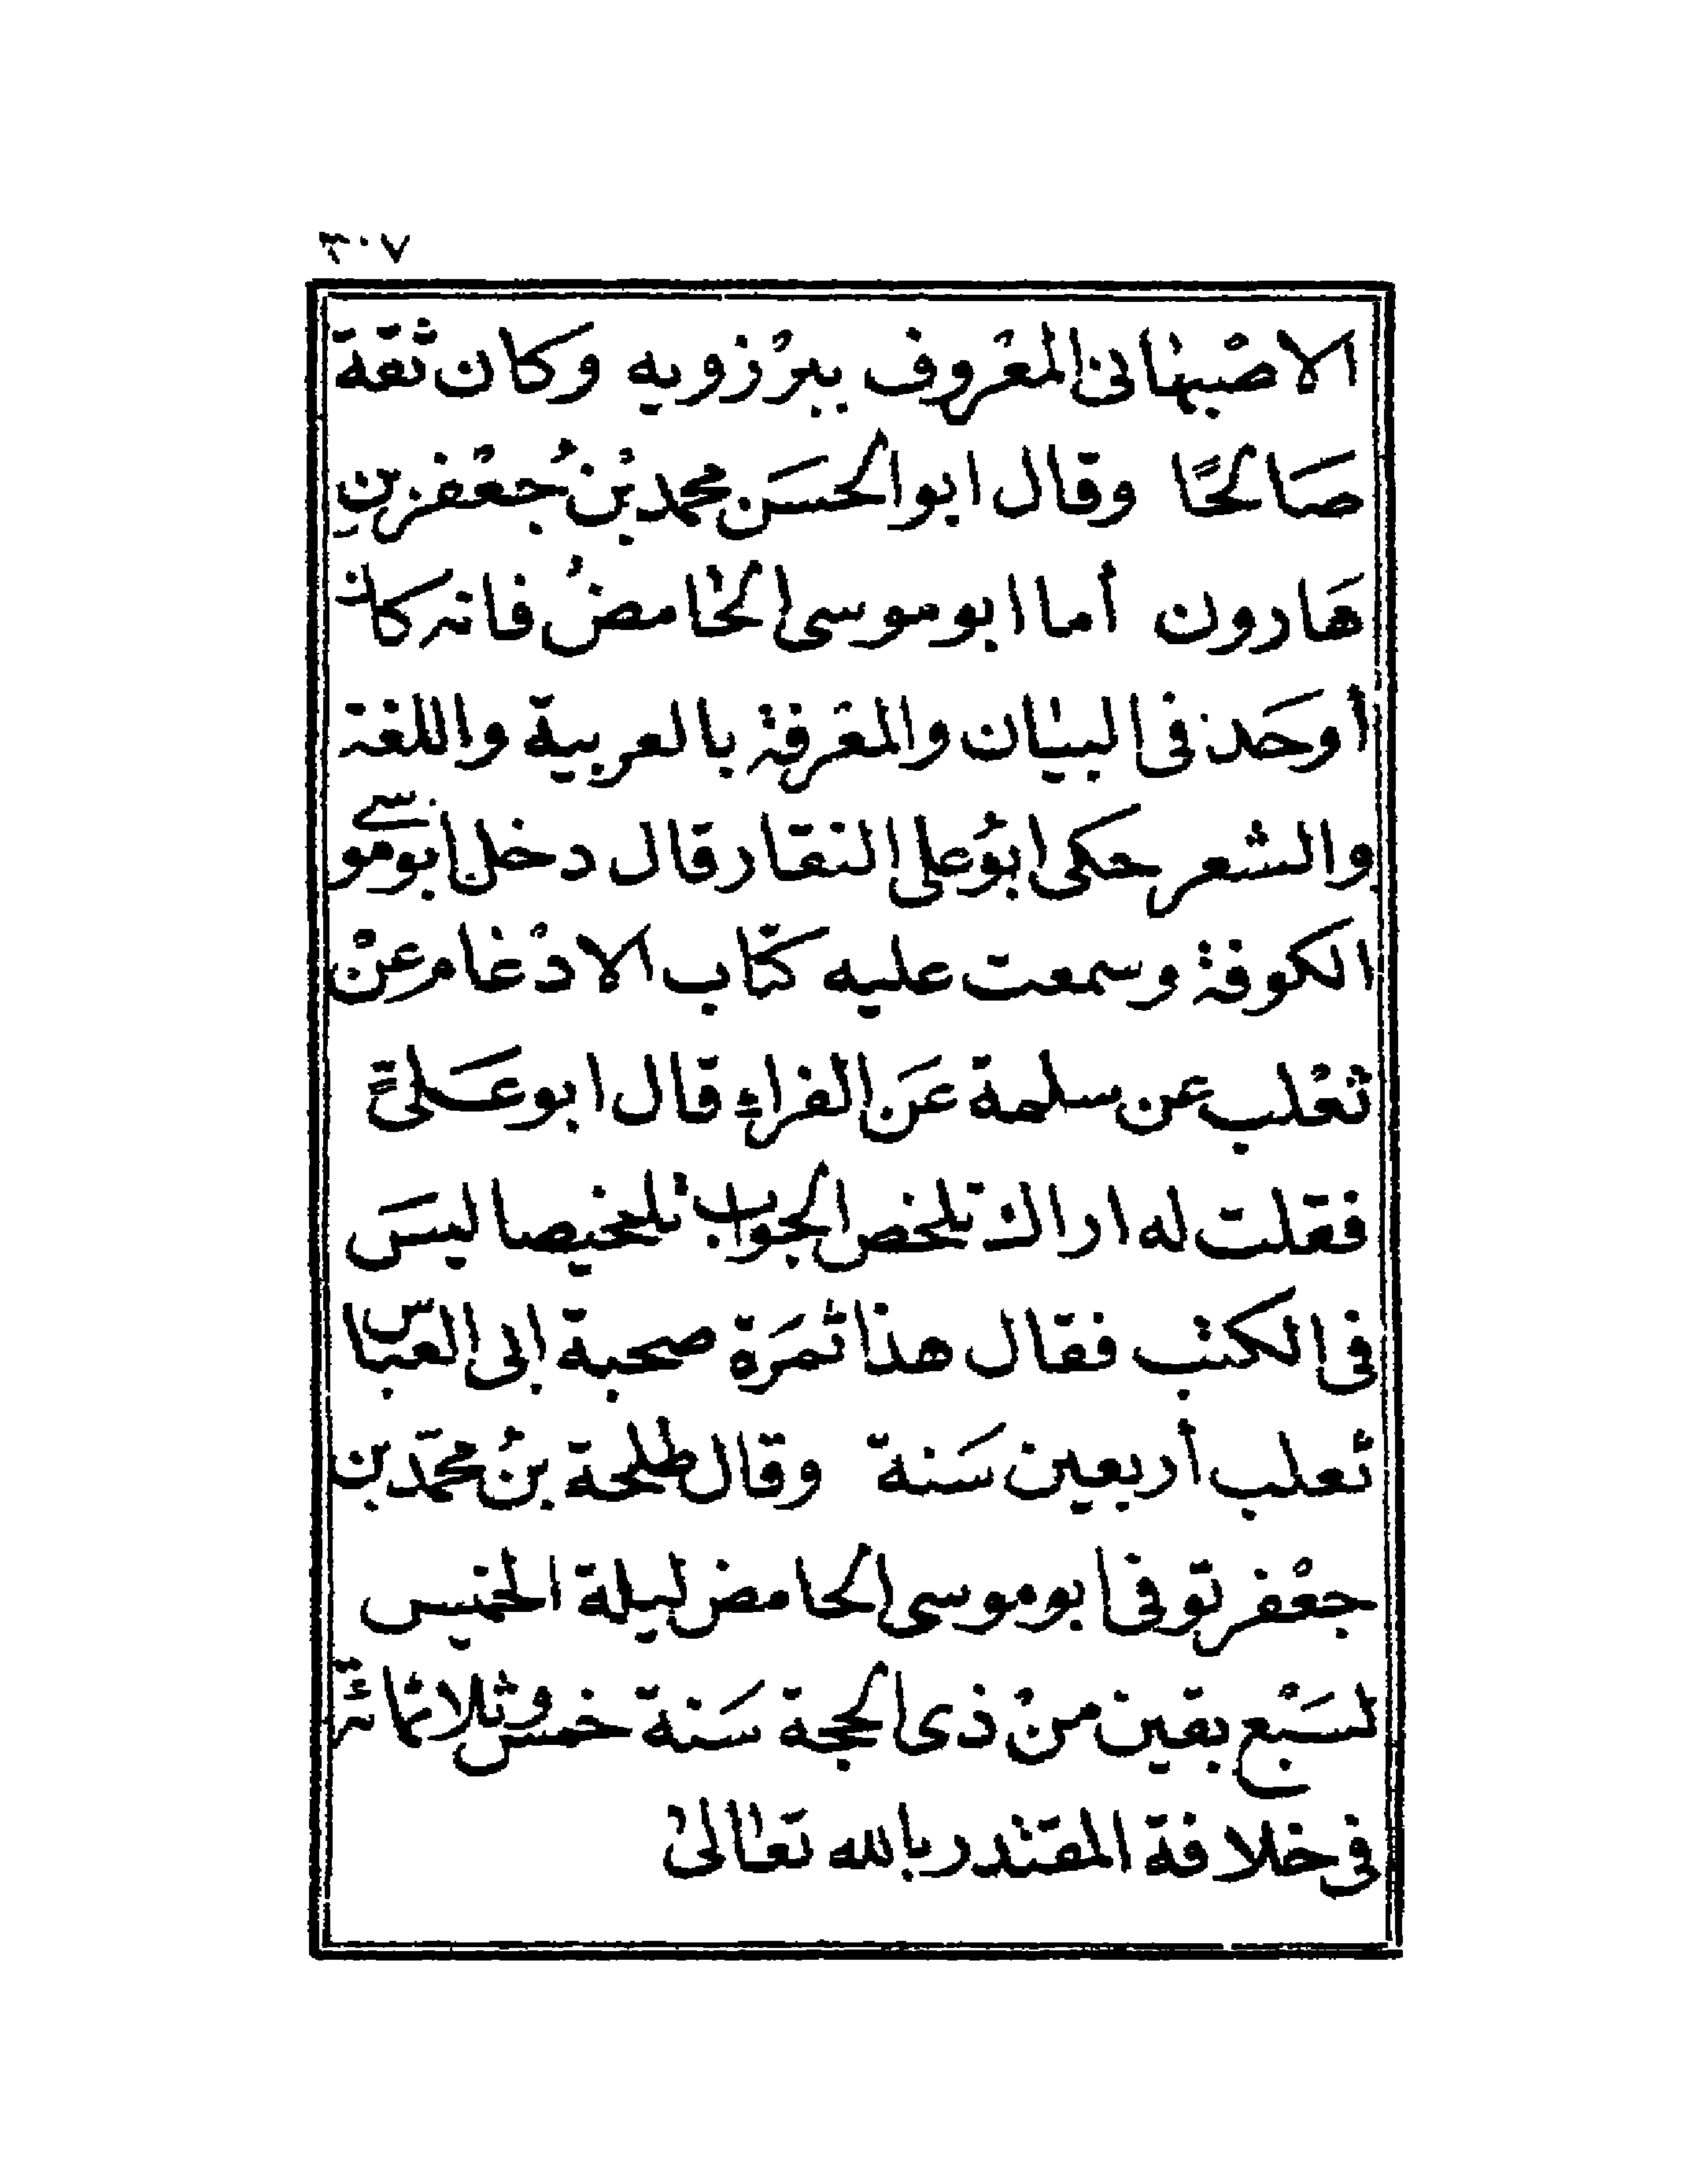 ٣٠٧
الاصْبهانى المعْروف ببرْزويه وكان ثقة
صَالحًا وقال ابو الحسَن محمد بْنُ جُعْفر بنِ
هَارون أما ابو موسى الحامضُ فانه كان
أوحَد فى البيان والمعْرفة بالعربية واللغة
والشعر حكى ابوُ على النقار قال دخل ابو موسى
الكوفة وسمعت عليه كتاب الادْغام عنْ
ثعْلب عن سلمة عَن الفراءِ قال ابو عَلىّ
فقلت له اراك تلخص الجواب تلخيصا ليسَ
فى الكتب فقال هذا ثمَرَة صحبة إبى العباس
ثعلب أربعين سَنة وقال طلحة بنُ محمّد بن
جعْفر توفى ابو موسى الحامض ليلة الخميس
لسَبْع بقين منْ ذى الحجة سَنة خمس وثلاثمائة
فى خلافة المقتدر بالله تعالى